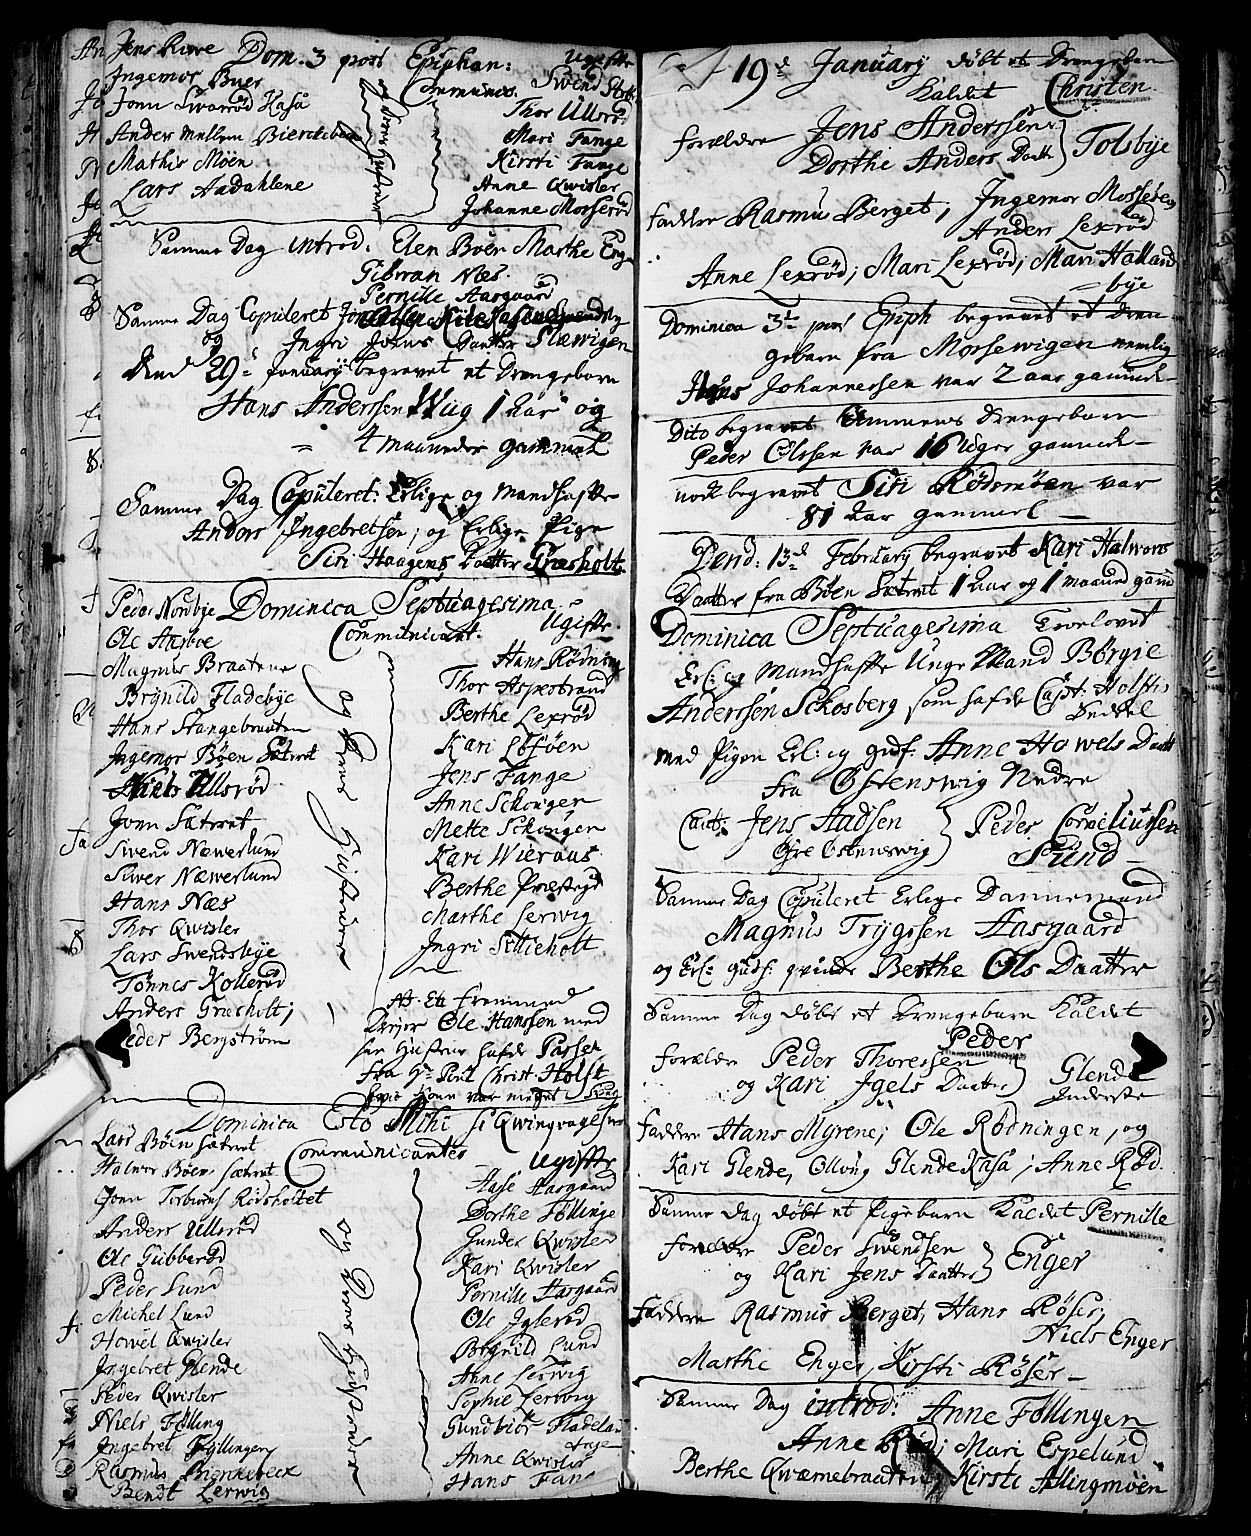 Jens Ruve Dom. 3 post Epiphan: Ugifte
Ingemor Buer Communic. Swend
Jonn Swarød Kasa Thor Ullerød
Anders Mellem Bierckebeck Mari Tange
Mathis Möen Kirsti Tange
Lars Aadahlene Anne Qwisler
Johanne Mosserød
og deres Hustruer
Samme Dag introd. Elen Boer Marthe Enger
Gibiran Næs.
Pernille Aasgaard
Samme Dag Copuleret
og Ingri Joens Daatter Slæwigen
Dend 29de January begravet et Drengebarn
Hans Anderssen Wiig 1 Aar og
= 4 maaneder gammel
Samme Dag Copuleret: Erlige og Mandhafte
Anders Ingebretsen; og Erlige Pige
Siri Haagens Daatter Græsholt.
Peder Nordbye Dominica Septuagesima
Ole Aasboe Communicant. Ugifte.
Magnus Braatene Hans Rødning
Brynild Fladebye Thor Aspestrand
Hans Stangebraaten Berthe Lexrød
Ingemor Böen Sætret Kari Löföen
Niels Ullerød Jens Tange
Jonn Sætret Anne Schongen
Swend Næwerlund Mette Schongen
Siwer Næwerlund Kari Wieraas
Hans Næs Berthe Præstegd
Thor Qwisler Marthe Lerwig
Lars Swensbye Ingri Sillieholt
Tönnes Kollerød
Anders Græsholt;
Peder Bergströn
og deres Hustruer
Nb. En fremmed
Drejer Ole Hanssen med
sin Hustrue hafde Passer
fra Hr. Christ Holst
Dominica Esto Mihi s: Qwinqvagesima
Lars Böen Sætret Communicantes Ugifte
Halwor Böen Sætret Aase Aasgaard
Jonn Torbiörns Rödsholtet Dorthe Föllinge
Anders Ullerød Gunder Qwisler
Ole Gubberød Kari Qwisler
Peder Lund Pernille Aasgaard
Michel Lund Ole Jglerød
Howel Qwisler Brynild Lund
Ingebret Glende Anne Lerwig
Peder Qwisler Sophie Lerwig
Niels Fölling Gundbiör Fladeland
Ingebret Föllingen Anne Qwisler
Rasmus Bierckebeck Hans Tange
Bendt Lerwig
og deres Hustruer
19de January döbt et Drengebarn
Kaldet Christen
Forældre Jens Anderssen
Dorthe Anders Daatter } Tolsbye
Faddere Rasmus Berget; Ingemor Mosseroe
Anders Lexrød
Anne Lexrød; Mari Lexrød; Mari Halland
= bye
Dominica 3tia post Epiph begravet et Dren
gebarn fra Morsewigen nemlig
Hans Johannessen var 2 aar gammel
Dito begravet Ammens Drengebarn
Peder Olssen var 16 uger gammel
nock begravet Siri Rödsmöen var
81 Aar gammel
Dend: 13de February begravet Kari Halwors
Daatter fra Böen Sætret 1 Aar og 1 maaned gam
Dominica Septuagesima Trolovet
Erl: og Mandhafte Unge Mand Börgie
Anderssen Schosberg som hafde Capt: Holstis
Seddel
med Pigen Erl: og gudf. Anne Howels Daatt
fra Östenswig Nedre
Caut: Jens Aadsen } Peder Corneliussen
Öfre Östenswig Sund
Samme Dag Copuleret Erlige Dannemand
Magnus Trijgssen Aasgaard
og Erl: gudf: qvinde Berthe Ols Daatter
Samme Dag döbt et Drengebarn Kaldet
Peder
Forældre Peder Thoressen
og Kari Jgels Daatter } Glende
Inderste
Faddere Hans Myrene; Ole Rødningen, og
Kari Glende, Ollöug Glende Kasa; Anne Rød.
Samme Dag döbt et Pigebarn Kaldet Pernille
Forældre Peder Swendsen
og Kari Jens Daatter } Enger
Faddere Rasmus Berget, Hans Röser,
Niels Enger
Marthe Enger, Kirsti Röser
Samme Dag introd: Anne Föllingen
Anne Rød; Mari Espelund
Berthe Qwæmebraaten, Kirsti Allingmöen